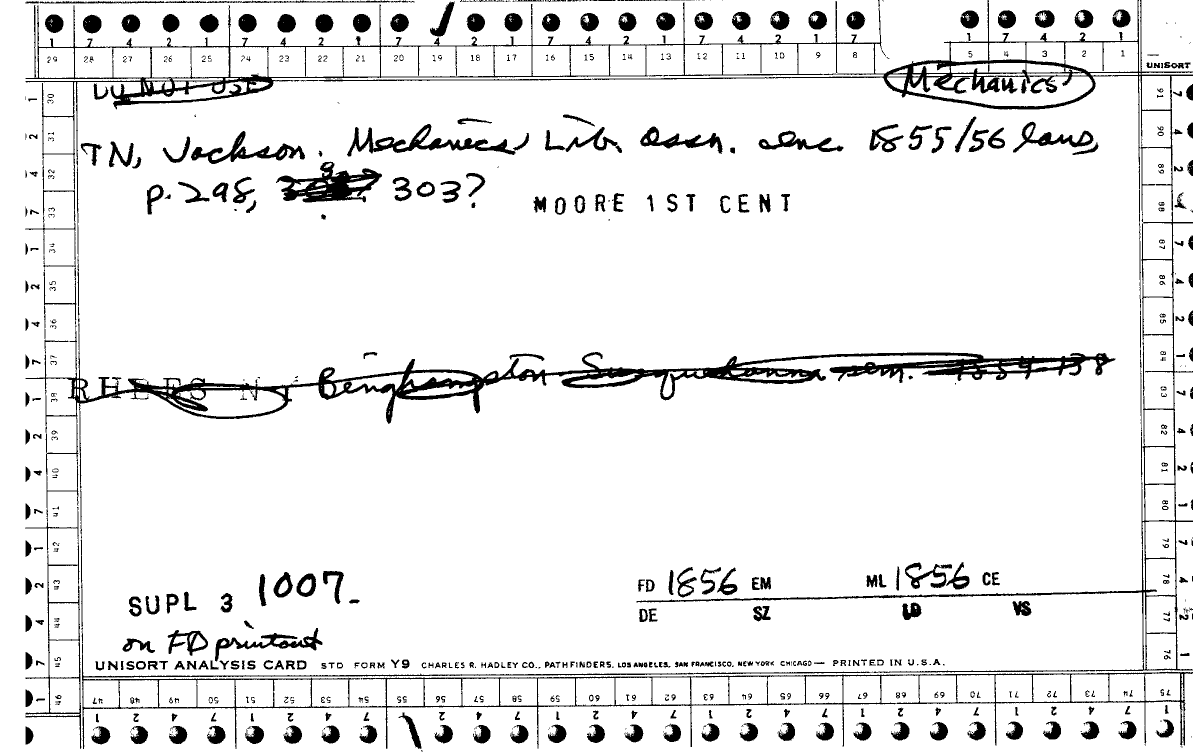 1 7 4 2 1 7 4 2 1 7 4 2 1 7 4 2 1 7 4 2 1 7 1 7 4 2 1
29 28 27 26 25 24 23 22 21 20 19 18 17 16 15 14 13 12 11 10 9 8 5 4 3 2 1
UNISORT
DO NOT USE Mechanics'
TN, Jackson. Mechanics' Lib. Assn. inc. 1855/56 laws,
p. 298, 303?
MOORE 1ST CENT
RHEES NY Binghampton Susquehanna sem. 1854-138
SUPL 3 1007
on FD printout
FD 1856 EM ML 1856 CE
DE SZ LD VS
UNISORT ANALYSIS CARD STD FORM Y9 CHARLES R. HADLEY CO., PATHFINDERS, LOS ANGELES, SAN FRANCISCO, NEW YORK CHICAGO — PRINTED IN U.S.A.
47 48 49 50 51 52 53 54 55 56 57 58 59 60 61 62 63 64 65 66 67 68 69 70 71 72 73 74 75